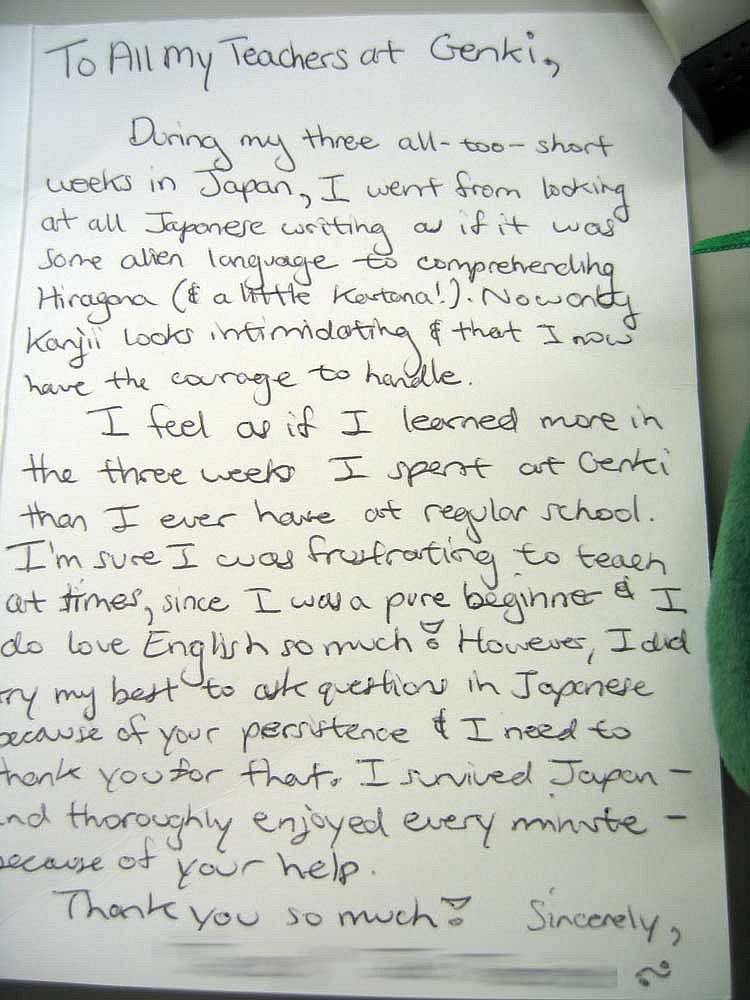 To All My Teachers at Genki,
During my three all-too-short
weeks in Japan, I went from looking
at all Japanese writing as if it was
some alien language to comprehending
Hiragana (& a little Katana!). Now only
Kanjii looks intimidating & that I now
have the courage to handle.
I feel as if I learned more in
the three weeks I spent at Genki
than I ever have at regular school.
I'm sure I was frustrating to teach
at times, since I was a pure beginner & I
do love English so much! However, I did
try my best to ask questions in Japanese
because of your persistence & I need to
thank you for that. I survived Japan -
and thoroughly enjoyed every minute -
because of your help.
Thank you so much! Sincerely,